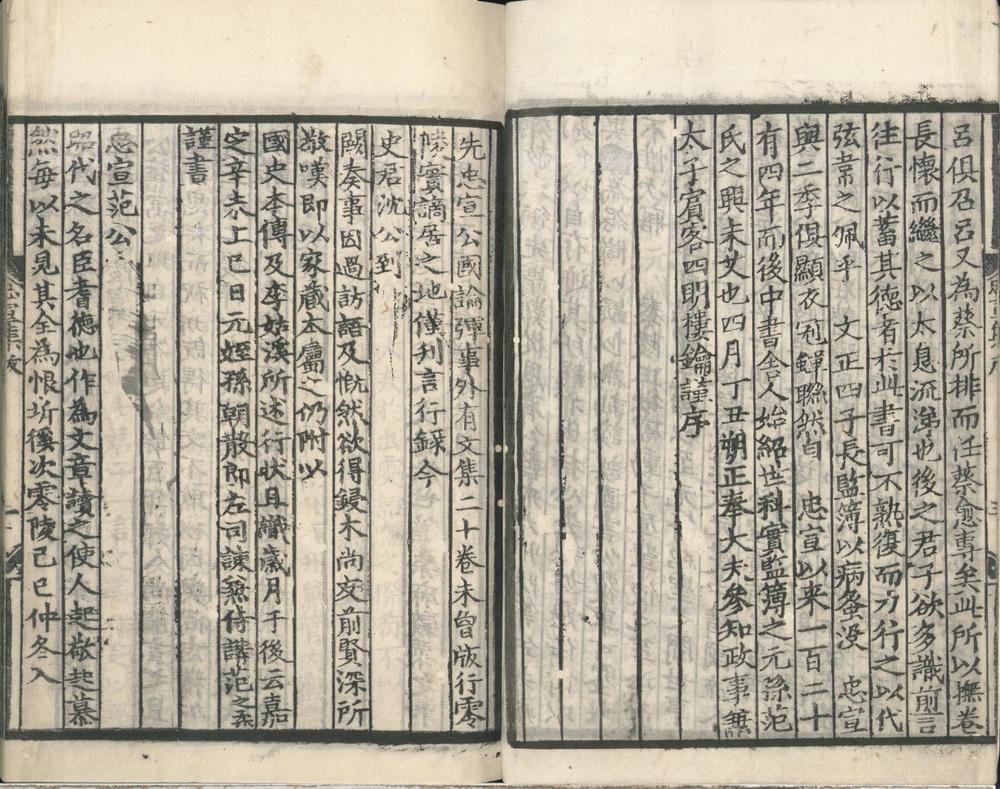 呂俱召呂又為蔡所排而任蔡愈專矣此所以撫卷
長懷而繼之以太息流涕也後之君子欲多識前言
往行以蓄其德者於此書可不熟復而力行之以代
弦韋之佩乎 文正四子長監簿以病蚤没 忠宣
與二季俱顯衣冠蟬聮然自 忠宣以来一百二十
有四年而後中書舍人始紹世科實監簿之元孫范
氏之興未艾也四月丁丑朔正奉大夫參知政事兼
太子賓客四明樓鑰謹序
先忠宣公國論彈事外有文集二十卷未曾版行零
陵實謫居之地僅刋言行録今
史君沈公到
闕奏事因過訪語及慨然欲得鋟木尚友前賢深所
敬嘆即以家藏本屬之仍附以
國史本傳及李姑溪所述行状且識歲月于後云嘉
定辛未上巳日元姪孫朝散郎左司諫兼侍講范之柔
謹書
忠宣范公
昭代之名臣耆德也作為文章讀之使人起敬起慕
然每以未見其全為恨圻徯次零陵已巳仲冬入